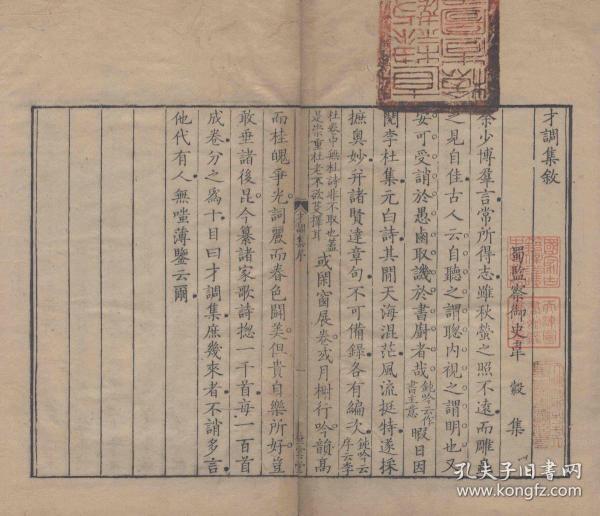 才調集敘
蜀監察御史韋縠集
余少博羣言常所得志雖秋螢之照不遠而雕蟲
之見自佳古人云自聽之謂聰內視之謂明也又
安可受誚於愚鹵取譏於書廚者哉鈍吟云作書主意暇日因
閱李杜集元白詩其間天海混茫風流挺特遂採
摭奧妙并諸賢達章句不可備錄各有編次鈍吟云序云李
杜集中無杜詩非不取也蓋是崇重杜老不欲芟擇耳或閑窗展卷或月榭行吟韻高
才調集序 一 垂雲堂
而桂魄爭光詞麗而春色鬭美但貴自樂所好豈
敢垂諸後昆今纂諸家歌詩揔一千首每一百首
成卷分之爲十目曰才調集庶幾來者不誚多言
他代有人無嗤薄鑒云爾
孔夫子旧书网
www.kongfz.com